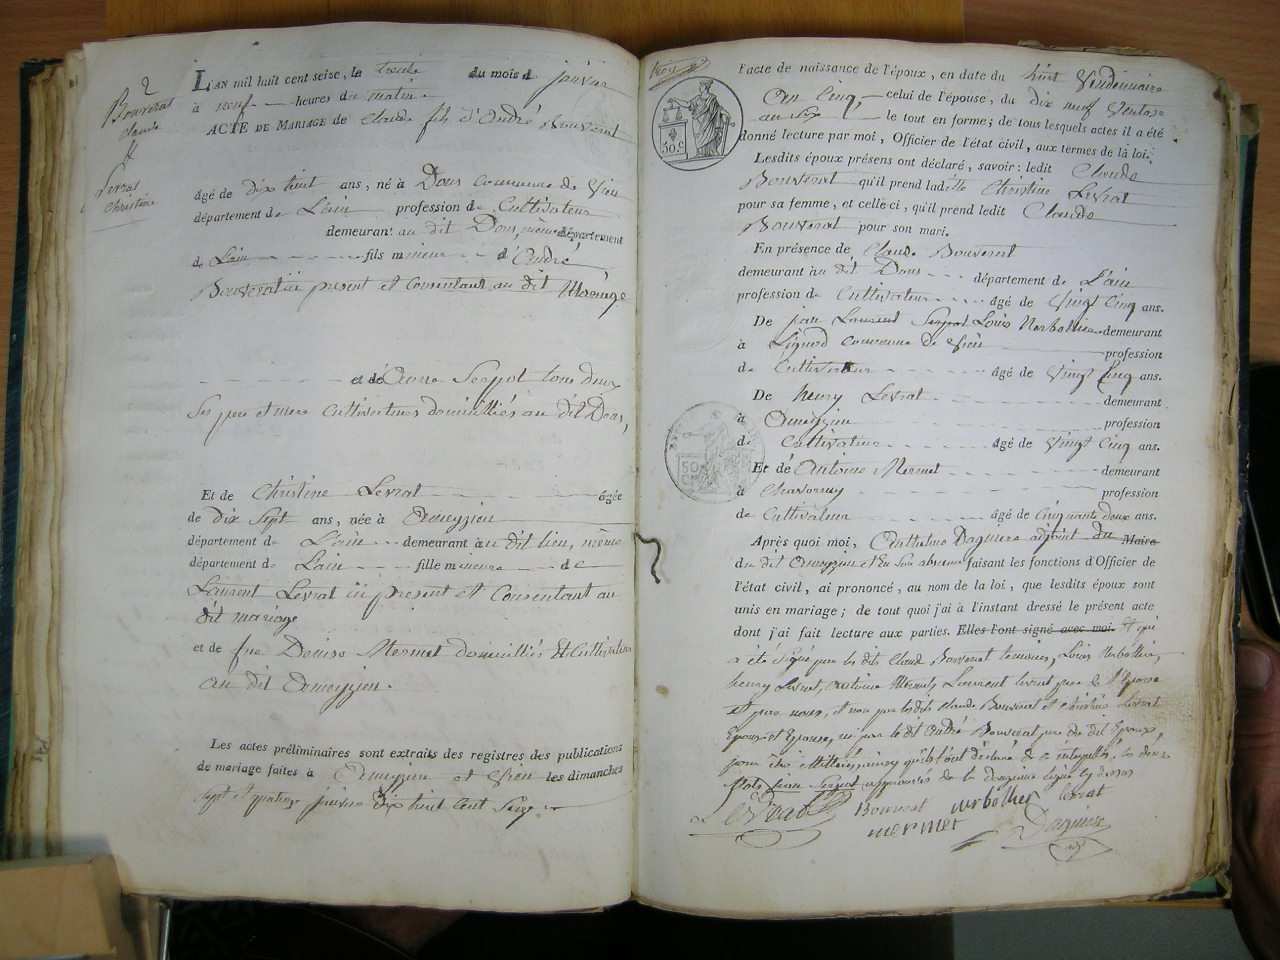 2
Bouverat
Claude
&
Levrat
Christine
L'an mil huit cent seize, le treize du mois d janvier
à neuf heures du matin.
ACTE DE MARIAGE de Claude fils d'André Bouverat
âgé de dix huit ans, né à Dons commune de Vieu
département de L'ain profession de Cultivateur
demeurant au dit Dons, même département
de L'ain fils mineur d'André
Bouverat ici present et Consentant au dit Mariage
et de Anne Serpol tous deux
Ses pere et mere Cultivateurs domicilliés au dit Dons,
Et de Christine Levrat âgée
de dix Sept ans, née à Ameyzieu
département de L'ain demeurant au dit lieu, même
département de L'ain fille mineure de
Laurent Levrat ici present et Consentant au
dit mariage
et de feue Denise Mermet domicilliés & Cultivateurs
au dit Ameyzieu.
Les actes préliminaires sont extraits des registres des publications
de mariage faites à Ameyzieu et Vieu les dimanches
sept et quatorze janvier dix huit Cent Seize
50.C
l'acte de naissance de l'époux, en date du huit Vendemiaire
an Cinq, celui de l'épouse, du dix neuf Ventose
an Six le tout en forme; de tous lesquels actes il a été
donné lecture par moi, Officier de l'état civil, aux termes de la loi.
Lesdits époux présens ont déclaré, savoir: ledit Claude
Bouverat qu'il prend ladite Christine Levrat
pour sa femme, et celle ci, qu'il prend ledit Claude
Bouverat pour son mari.
En présence de Claude Bouverat
demeurant à au dit Dons département de L'ain
profession de Cultivateur âgé de Vingt Cinq ans.
De jean Laurent Serpol Louis Nerbollier demeurant
à Lignod commune de Vieu profession
de Cultivateur âgé de Vingt Cinq ans.
De henry Levrat demeurant
à Ameyzieu profession
de Cultivateur âgé de Vingt Cinq ans.
Et de Antoine Mermet demeurant
à Chavornay profession
de Cultivateur âgé de Cinquante deux ans.
Après quoi moi, Anthelme Dagniere adjoint du Maire
du dit Ameyzieu et En Son absence faisant les fonctions d'Officier de
l'état civil, ai prononcé, au nom de la loi, que lesdits époux sont
unis en mariage; de tout quoi j'ai à l'instant dressé le présent acte
dont j'ai fait lecture aux parties. Elles l'ont signé avec moi. & qui
a été Signé par les dits Claude Bouverat temoins, Louis Nerbollier,
henry Levrat, Antoine Mermet, Laurent Levrat pere de l'Epouse
et par nous, et non par lesdits Claude Bouverat et Christine Levrat
Epoux et Epouse, ni par le dit André Bouverat pere du dit Epoux,
pour être illitterés qu'ils l'ont déclaré de ce interpellés, les deux
mots jean Serpol
Levrat Bouverat nerbollier levrat
mermet Dagniere